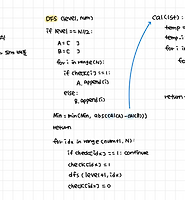 DFS (level, num)
if level == N//2:
A = [ ]
B = [ ]
for i in range(N):
if check[i] == 1:
A. append(i)
else:
B. append(i)
Min = Min(Min, abs(cal(A) - cal(B)))
return
for idx in range (num+1, N):
if check[idx] == 1: continue
check[idx] = 1
dfs (level+1, idx)
check[idx] = 0
cal(list):
temp =
temp.
for i i
fo
return